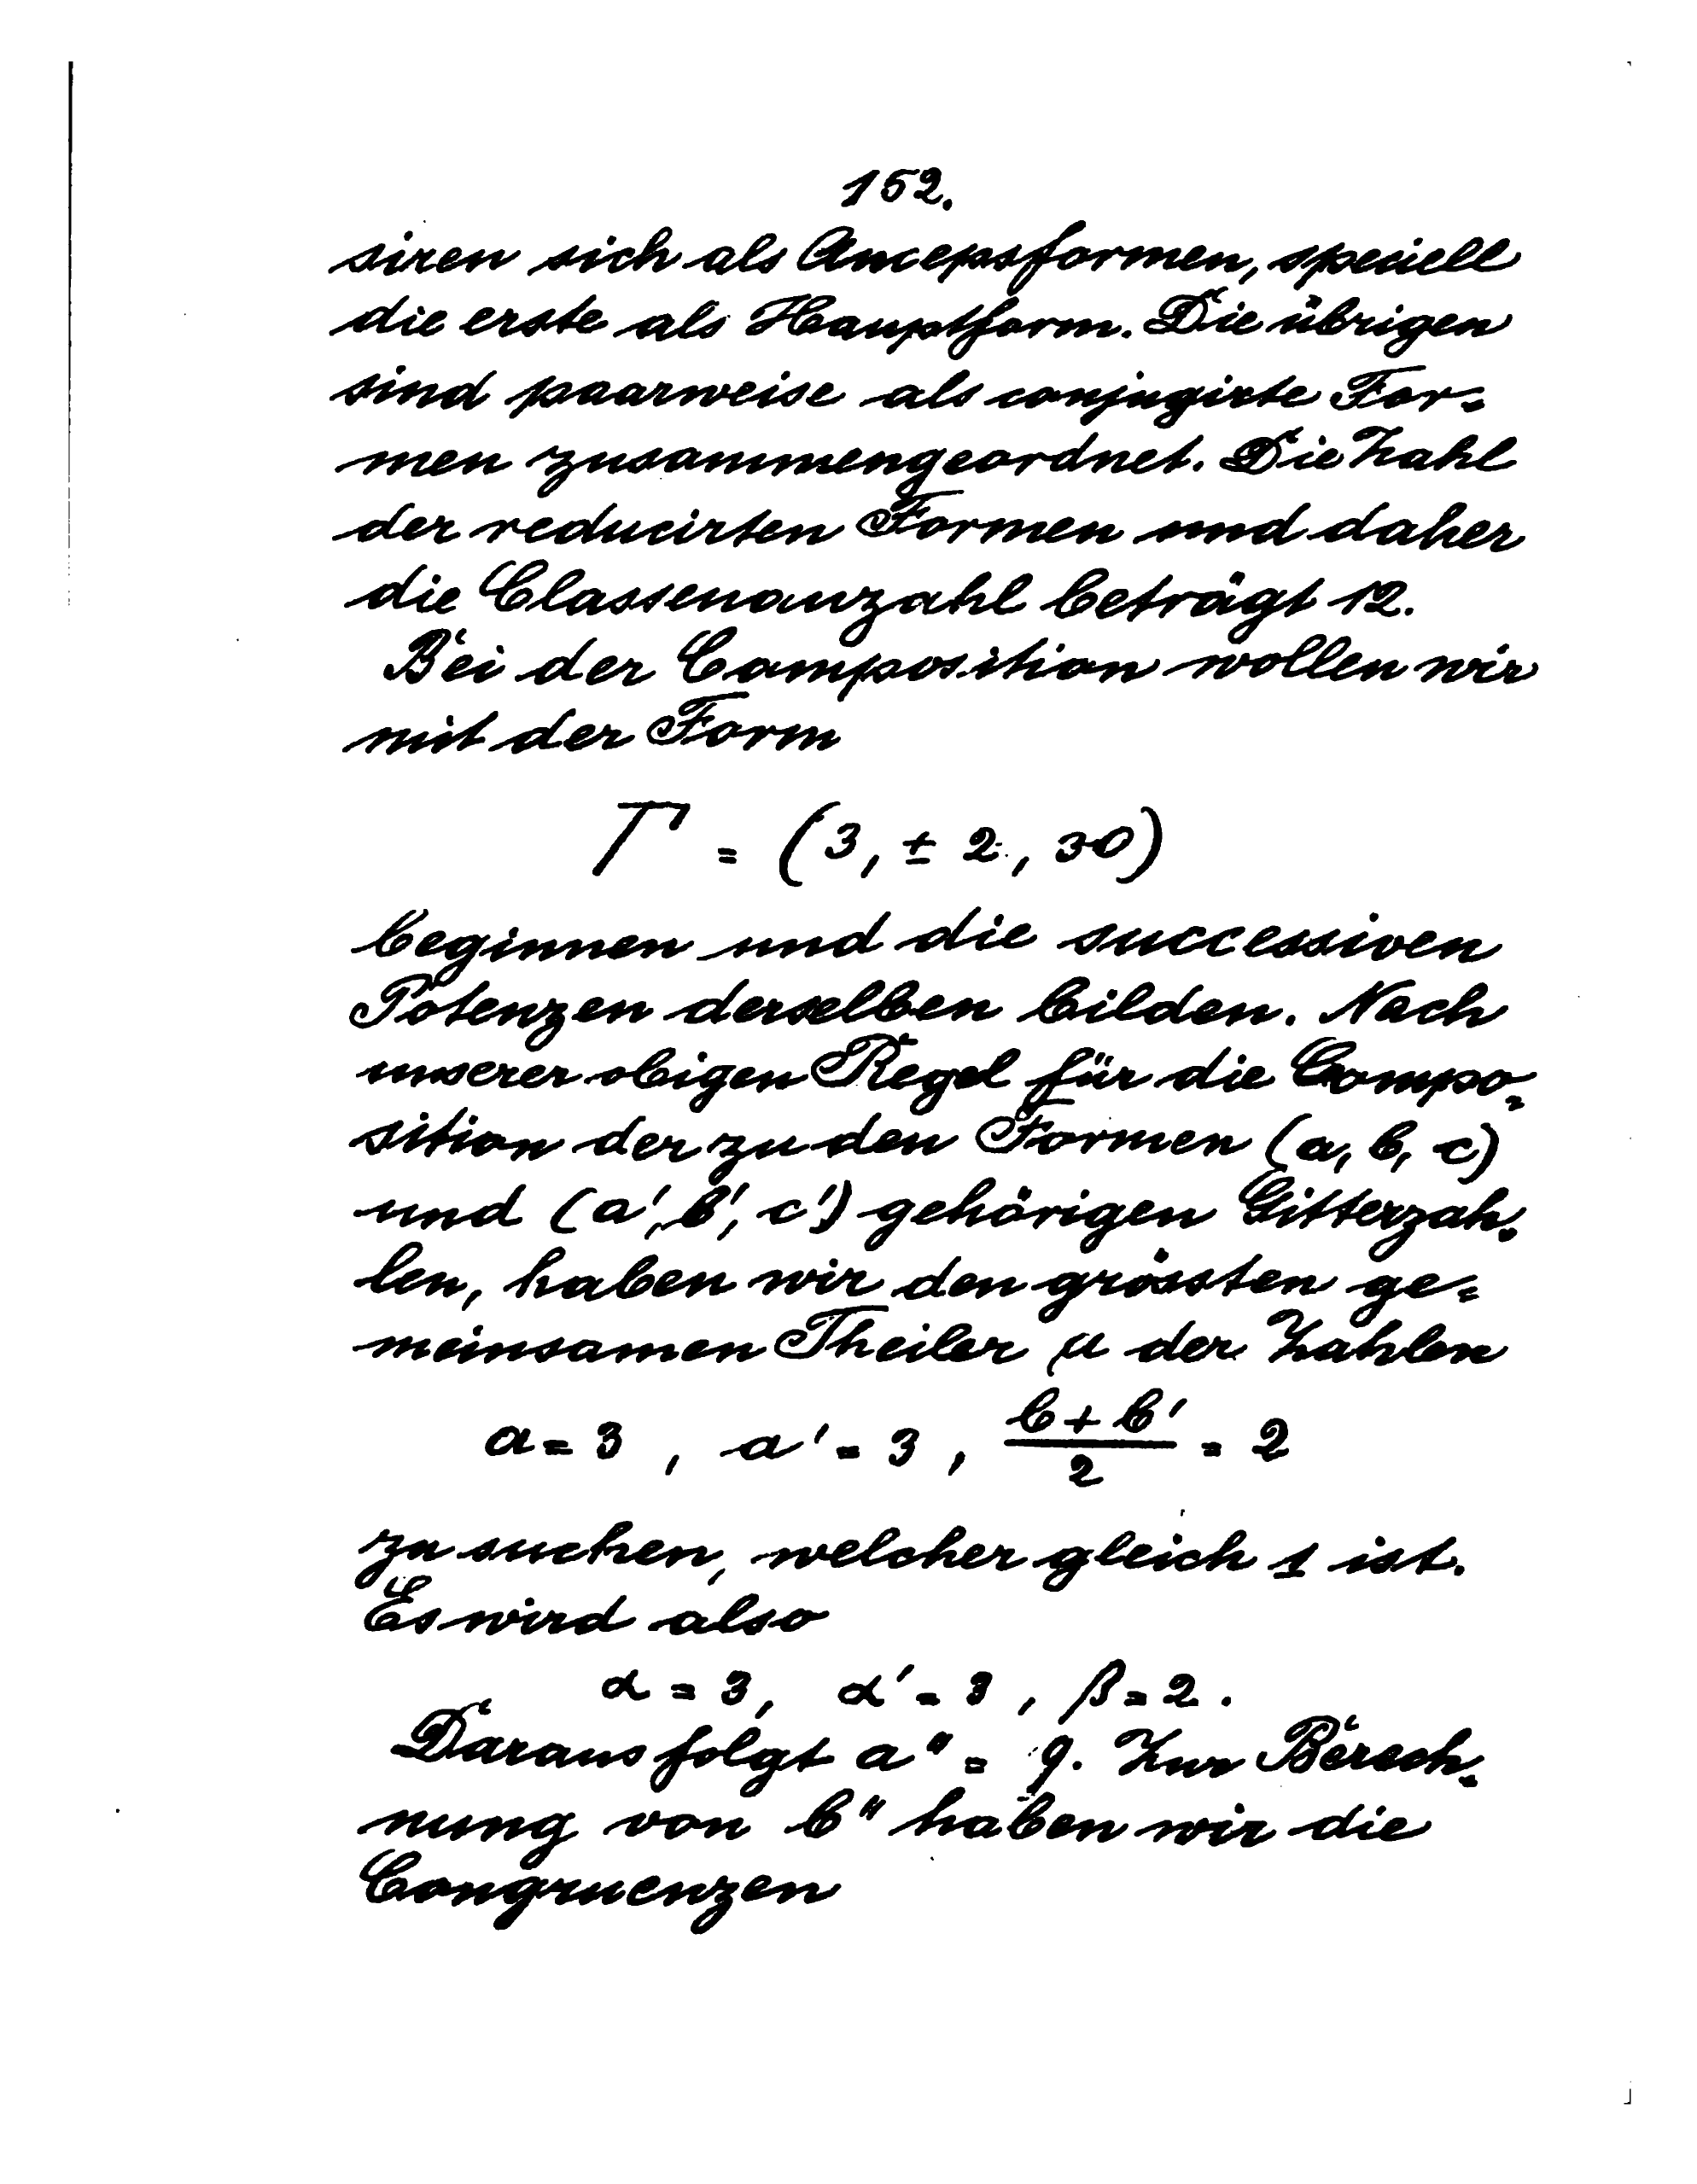 152.
siren sich als Ancepsformen, speciell
die erste als Hauptform. Die übrigen
sind paarweise als conjugirte For-
men zusammengeordnet. Die Zahl
der reducirten Formen und daher
die Classenanzahl beträgt 12.
Bei der Composition wollen wir
mit der Form
Γ = (3, ± 2, 30)
beginnen und die successiven
Potenzen derselben bilden. Nach
unserer obigen Regel für die Compo-
sition der zu den Formen (a, b, c)
und (a', b', c') gehörigen Gitterzah-
len, haben wir den grössten ge-
meinsamen Theiler μ der Zahlen
a = 3, a' = 3, (b + b')/2 = 2
zu suchen, welcher gleich 1 ist.
Es wird also
α = 3, α' = 3, β = 2.
Daraus folgt a" = 9. Zur Berech-
nung von b" haben wir die
Congruenzen